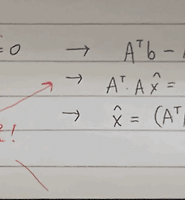 = 0 → Aᵀb −
→ Aᵀ·A x̂ =
→ x̂ = (Aᵀ
!